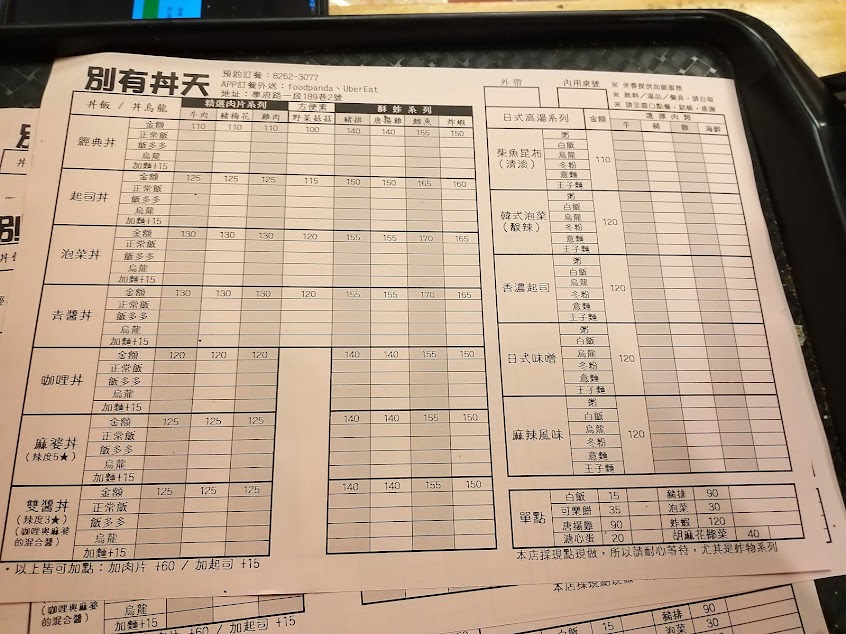 別有丼天
預約訂餐：8262-3077
APP訂餐外送：foodpanda、UberEat
地址：學府路一段189巷2號
外帶
內用桌號
※ 免費提供加飯服務
※ 飲料/湯品/餐具，請自取
※ 請至櫃口點餐、結帳，感謝
丼飯 / 丼烏龍
精選肉片系列 方便素 酥炸系列
牛肉 豬梅花 雞肉 野菜菇菇 豬排 唐揚雞 鱈魚 炸蝦
經典丼
金額 110 110 110 100 140 140 155 150
正常飯
飯多多
烏龍
加麵+15
起司丼
金額 125 125 125 115 150 150 165 160
正常飯
飯多多
烏龍
加麵+15
泡菜丼
金額 130 130 130 120 155 155 170 165
正常飯
飯多多
烏龍
加麵+15
青醬丼
金額 130 130 130 120 155 155 170 165
正常飯
飯多多
烏龍
加麵+15
咖哩丼
金額 120 120 120 140 140 155 150
正常飯
飯多多
烏龍
加麵+15
麻婆丼
(辣度5★)
金額 125 125 125 140 140 155 150
正常飯
飯多多
烏龍
加麵+15
雙醬丼
(辣度3★)
(咖哩與麻婆
的混合醬)
金額 125 125 125 140 140 155 150
正常飯
飯多多
烏龍
加麵+15
・以上皆可加點：加肉片 +60 / 加起司 +15
日式高湯系列 金額 選擇肉類
牛 豬 雞 海鮮
柴魚昆布
(清淡)
110
粥
白飯
烏龍
冬粉
意麵
王子麵
韓式泡菜
(酸辣)
120
粥
白飯
烏龍
冬粉
意麵
王子麵
香濃起司
120
粥
白飯
烏龍
冬粉
意麵
王子麵
日式味噌
120
粥
白飯
烏龍
冬粉
意麵
王子麵
麻辣風味
120
粥
白飯
烏龍
冬粉
意麵
王子麵
單點
白飯 15 豬排 90
可樂餅 35 泡菜 30
唐揚雞 90 炸蝦 120
溏心蛋 20 胡麻花椰菜 40
本店採現點現做，所以請耐心等待，尤其是炸物系列
(咖哩與麻婆
的混合醬)
烏龍
加麵+15
+60 / 加起司 +15
白飯 15
豬排 90
泡菜 30